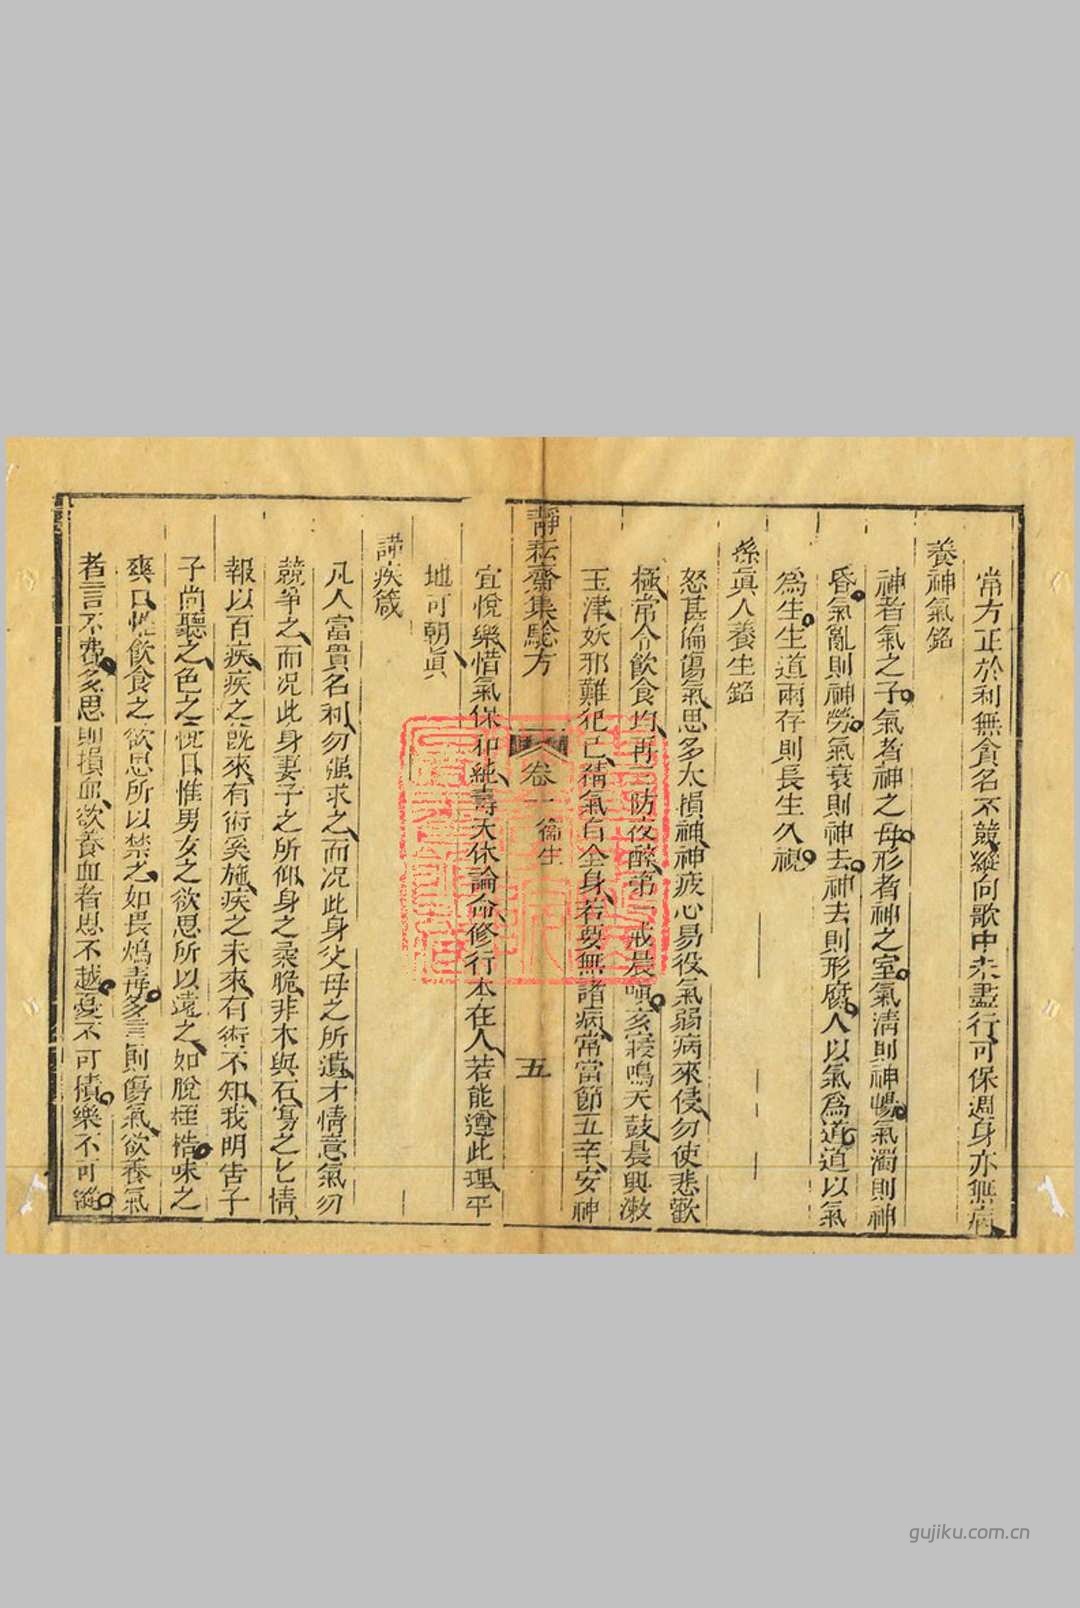 常方正於利無貪名不競縱向歌中未盡行可保週身亦無病
養神氣銘
神者氣之子氣者神之母形者神之室氣清則神暢氣濁則神
昏氣亂則神勞氣衰則神去神去則形腐人以氣為道道以氣
為生生道兩存則長生久視
孫眞人養生銘
怒甚偏傷氣思多太損神神疲心易役氣弱病來侵勿使悲歡
極常令飲食均再三防夜醉第一戒晨嗔亥寢鳴天鼓晨興漱
玉津妖邪難犯己精氣自全身若要無諸病常當節五辛安神
靜耘齋集騐方
卷一
衞生
五
宜悅樂惜氣保和純壽夭休論命修行本在人若能遵此理平
地可朝眞
謹疾箴
凡人富貴名利勿强求之而况此身父母之所遺才情意氣勿
競爭之而况此身妻子之所仰身之柔脆非木與石寡之七情
報以百疾疾之旣來有術奚施疾之未來有術不知我明告子
子尚聽之色之悅口惟男女之欲思所以遠之如脫桎梏味之
爽口惟飲食之欲思所以禁之如畏鴆毒多言則傷氣欲養氣
者言不費多思則損血欲養血者思不越憂不可積樂不可縱
gujiku.com.cn